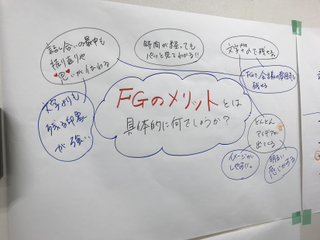 話し合いの最中も
振り返りや
思い出せる
時間が経っても
パッと見てわかる!!
文字なので残せる
FGで会議の雰囲気も
残せる
FGのメリットとは
具体的に何でしょうか?
文字よりも
残る印象
が強い
どんどん
アイデアが
出てくる
イメージが
しやすい。
明るい
感じがする